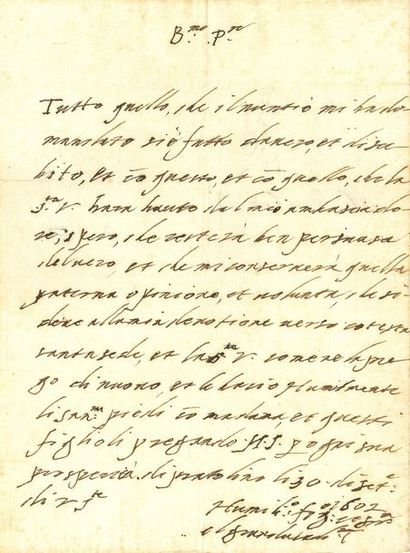 B.mo P.re
Tutto quello, che il nuntio mi ha do
mandato si è fatto da vero, et di su
bito, et cō questo, et cō quello, che la
S.tà V. harà hauto dal mio ambasciado
re, spero, che resterà ben persuasa
del vero, et che mi conserverà quella
paterna opinione, et volontà, che si
deve alla mia devotione verso cotesta
santa sede, et la S.tà V. come ne la pre
go di nuovo, et le bacio humilmente
li san.mi piedi cō madama, et questi
figlioli pregando per ogni sua
prosperità. di pratolino li 30 di set.
di V. S.tà 1602
Humil.o
il granduca di